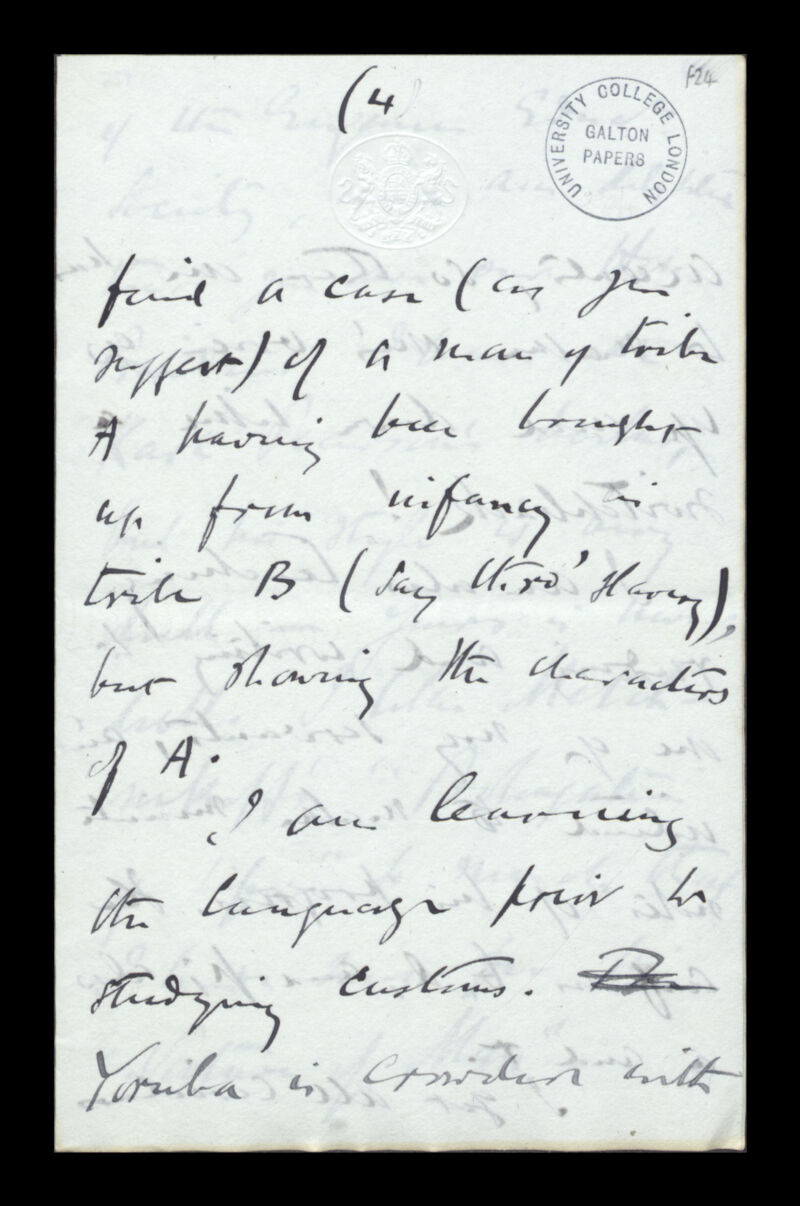 f24
(4
UNIVERSITY COLLEGE LONDON
GALTON
PAPERS
find a case (as you
suggest) of a man of tribe
A having been brought
up from infancy in
tribe B (say thro' slavery),
but showing the characters
of A.
I am learning
the language prior to
studying customs.
Yoruba is crowded with